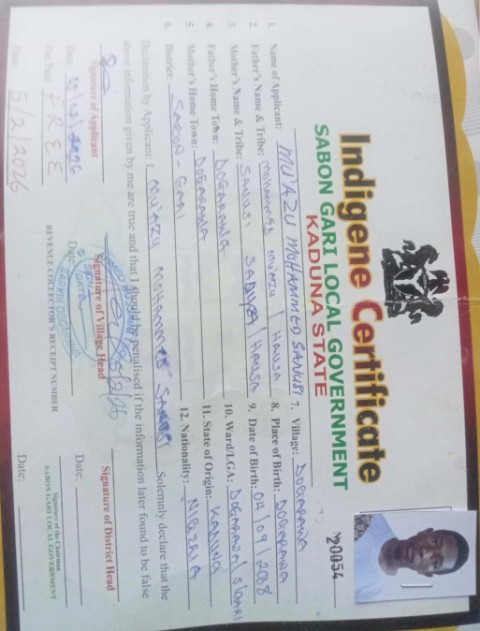 Indigene Certificate
SABON GARI LOCAL GOVERNMENT
KADUNA STATE
20054
1. Name of Applicant: MU'AZU MOHAMMED SANUSI 7. Village: DOGARAWA
2. Father's Name & Tribe: MOHAMMED MU'AZU / HAUSA 8. Place of Birth: DOGARAWA
3. Mother's Name & Tribe: SANUSI SADIYA / HAUSA 9. Date of Birth: 04/09/2008
4. Father's Home Town: DOGARAWA 10. Ward/LGA: DOGARAWA/S/GARI
5. Mother's Home Town: DOGARAWA 11. State of Origin: KADUNA
6. District: SABON-GARI 12. Nationality: NIGERIA
Declaration by Applicant: I, MU'AZU MOHAMMED SANUSI Solemnly declare that the
above information given by me are true and that I should be penalised if the information later found to be false
5/2/26
Signature of Applicant Signature of Village Head Signature of District Head
Date: Date: Date:
SIGN
DATE
Fee Paid: FREE
REVENUE COLLECTOR'S RECEIPT NUMBER
Signature of the Chairman
SABON GARI LOCAL GOVERNMENT
Date: 5/2/2026 Date: